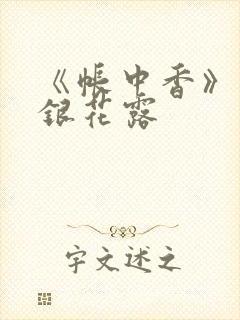 《帐中香》
银花露
宇文述之